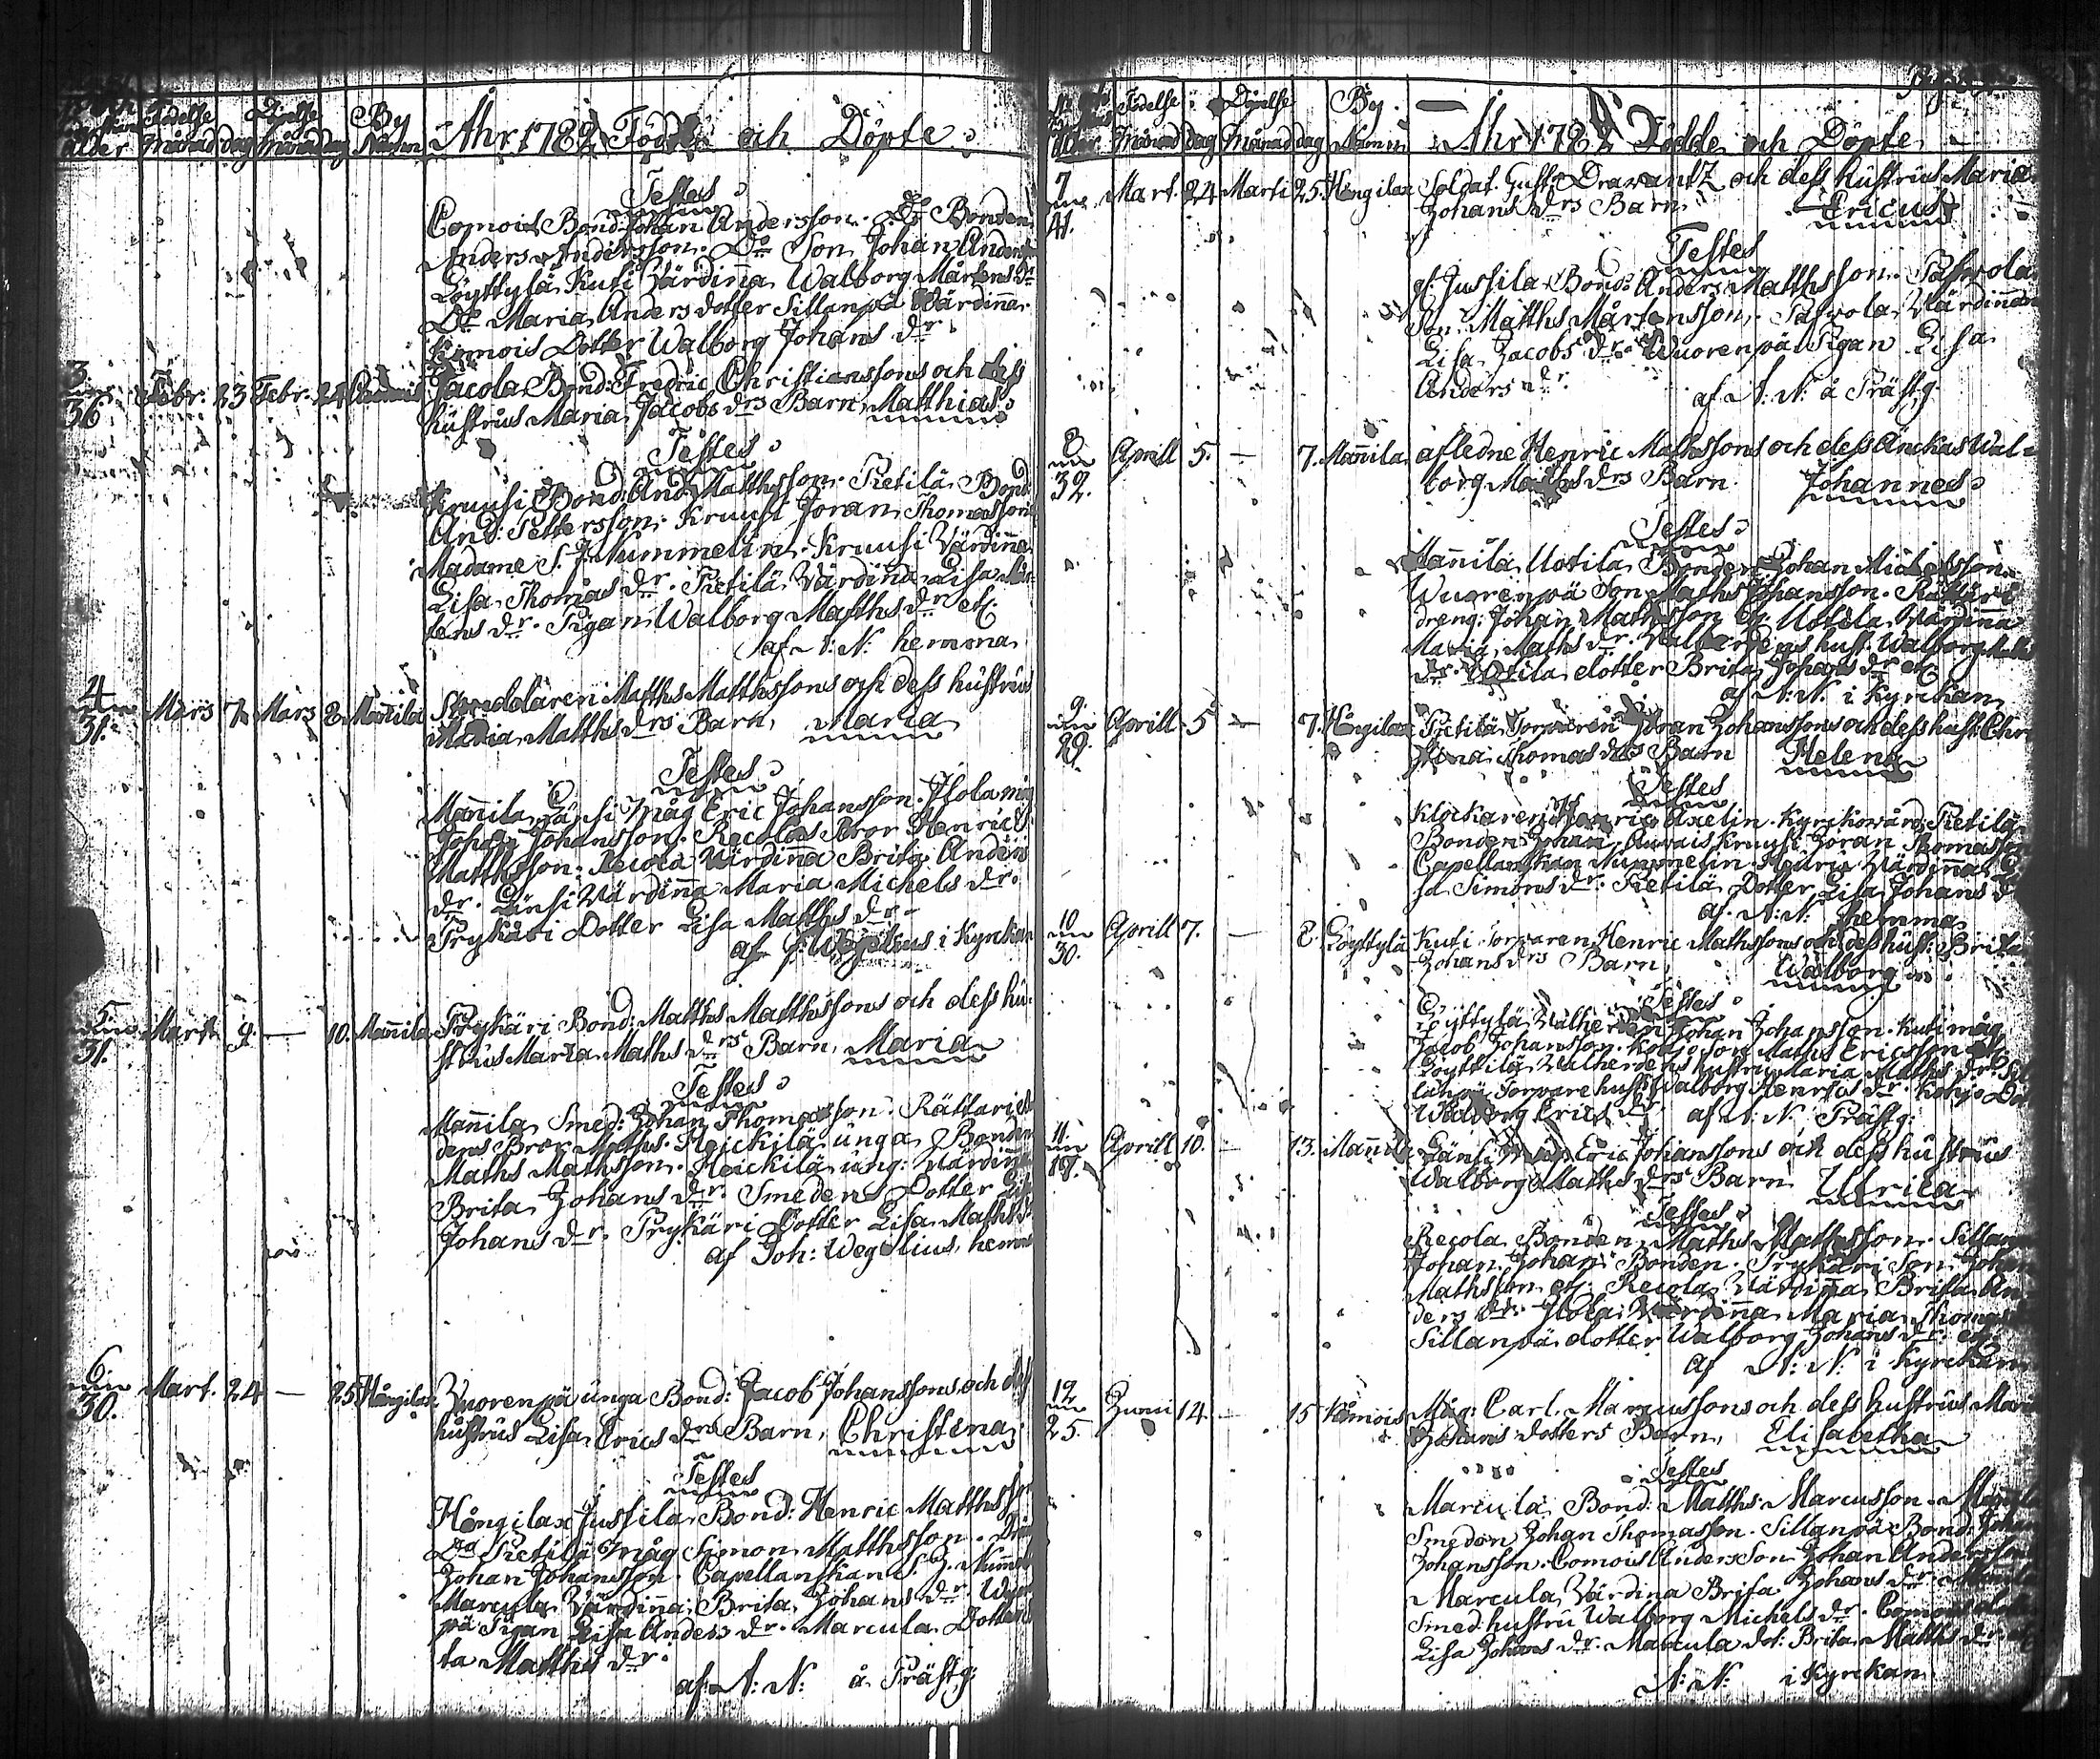 Födelse Döpelse By
ålder Månad dag Månad dag Namn Ahr 1782 Födde och Döpte
Testes
Comois Bond: Johan Andersson. Do Bonden
Anders Andersson. Do Son Johan Anders
Löyttylä Kuti Värdinna Walborg Mårtens dr
Do Maria Anders dotter Sillanpä Wärdinna
Komois Dotter Walborg Johans dr
3 36 Febr. 23 Febr. 24 Jacola Bond: Fredric Christianssons och dess
hustrus Maria Jacobs drs Barn, Matthias
Testes
Kruusi Bond: And: Matthsson. Pietilä Bond:
And: Pettersson. Kruusi Joran Thomasson
Madame S. J. Nummelin. Kruusi Värdinna
Lisa Thomas dr. Pietilä Värdina Lisa Mår-
tens dr. Pigan Walborg Matths dr etc.
af N: N: hemma
4 31. Mars 7. Mars 8. Mannila Skreddaren Matths Matthssons och dess hustrus
Maria Matths drs Barn, Maria
Testes
Mannila Länsi Måg Eric Johansson. Ilola måg
Johan Johansson. Recola Bror Henric
Matthsson. Recola Wärdinna Brita Anders
dr. Länsi Värdinna Maria Michels dr.
Prykäri Dotter Lisa Matths dr.
af J: Wegelius i Kyrckan
5 31. Mart. 9. — 10. Mannila Prykäri Bond: Matths Matthssons och dess hu-
strus Maria Maths drs Barn, Maria
Testes
Mannila Smed: Johan Thomasson. Rättari
dens Bror Maths. Heickilä unga Bonden
Maths Mathsson. Heickilä ung: Värdinna
Brita Johans dr. Smedens Dotter
Johans dr. Prykäri Dotter Lisa Maths
af Joh: Wegelius, hemma
6 30. Mart. 24 — 25 Hångilax Vuorenpä unga Bond: Jacob Johanssons och dess
hustrus Lisa Erics drs Barn, Christina
Testes
Hångilax Jussila Bond: Henric Matthsson
Pietilä Måg Simon Matthsson.
Johan Johansson. Capellanskan S. J. Numme
Marcula Värdinna Brita Johans dr.
pä Pigan Lisa Anders dr. Marcula Dotter
ta Matths dr.
af N: N: å Prästg:
Födelse Döpelse By
Månad dag Månad dag Namn Ahr 1782 Födde och Döpte
7 41. Mart. 24 Marti 25. Hångilax Soldat. Gust: Dravantz och dess hustrus Maria
Johans drs Barn Ericus
Testes
Jussila Bond: Anders Matthsson. Pafvola
Son Matths Mårtensson. Pafvola Wärdinnan
Lisa Jacobs dr. Wuorenpä Pigan Lisa
Anders dr.
af N: N: å Prästg:
8 32. Aprill 5. — 7. Mannila afledne Henric Mathssons och dess Änckas Wal-
borg Maths drs Barn Johannes
Testes
Mannila Uotila Bonden Johan Michelsson.
Wuorenpä Son Maths Johansson. Rättäri
dreng: Johan Mathsson etc. Uotila Wärdinna
Maria Maths dr. hust. Walborg
dr. Uotila dotter Brita Johans dr etc
af N: N: i Kyrckan
9 29. Aprill 5 — 7. Hångilax Pietilä Torparen Joran Johanssons och dess hust: Chri
stina Thomas drs Barn Helena
Testes
Klockaren Henric Axelin. Kyrckovärd: Pietilä
Bonden Johan, Kruusi Joran Thomasson
Capellanskan Nummelin. Värdinna
sa Simons dr. Pietilä Dotter Lisa Johans dr
af. N: N: hemma
10 30. Aprill 7. — 8. Löyttylä Kuti Torparen Henric Mathssons och dess hust: Brita
Johans drs Barn, Walborg
Testes
Löyttylä Johan Johansson. Kuti måg
Jacob Johansson. Maths Ericsson
Löyttilä hustru Maria Maths dr.
lanpä Torpare hust: Walborg Henrics dr.
Walborg Erics dr. af N: N: Prästg:
11. 18. Aprill 10. — 13. Mannila Länsi Måg Eric Johanssons och dess hustrus
Walborg Maths drs Barn Ullrica
Testes
Recola Bonden Maths Mathsson. Sillan
Johan Johan: Bonden. Prykäri Son Johan
Mathsson etc. Recola Wärdinna Brita An-
ders dr. Ilola Wärdinna Maria Thomas
Sillanpä dotter Walborg Johans dr etc.
af N: N: i Kyrckan
12 25. Juni 14. — 15 Kåmois Måg: Carl Marcussons och dess hustrus Maria
Johans dotters Barn, Elisabetha
Testes
Marcula Bond: Matths Marcusson. Mannila
Smeden Johan Thomasson. Sillanpä Bond: Johan
Johansson. Comois Anders Son Johan Andersson
Marcula Värdina Brita Johans dr.
Smed: hustru Walborg Michels dr.
Lisa Johans dr. Marcula dot: Brita Matths dr
N: N: i Kyrckan